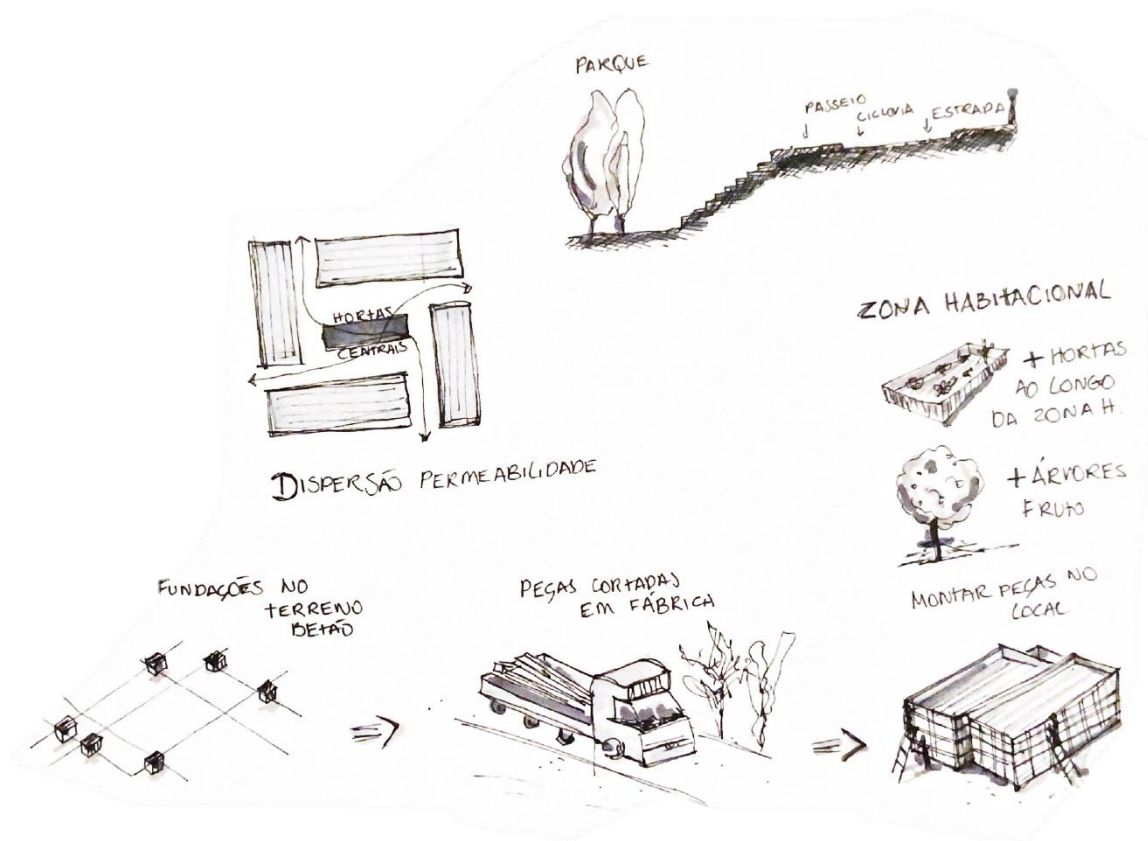 PARQUE
PASSEIO
CICLOVIA
ESTRADA
HORTAS
CENTRAIS
DISPERSÃO PERMEABILIDADE
ZONA HABITACIONAL
+ HORTAS
AO LONGO
DA ZONA H.
+ ÁRVORES
FRUTO
FUNDAÇÕES NO
TERRENO
BETÃO
PEÇAS CORTADAS
EM FÁBRICA
MONTAR PEÇAS NO
LOCAL